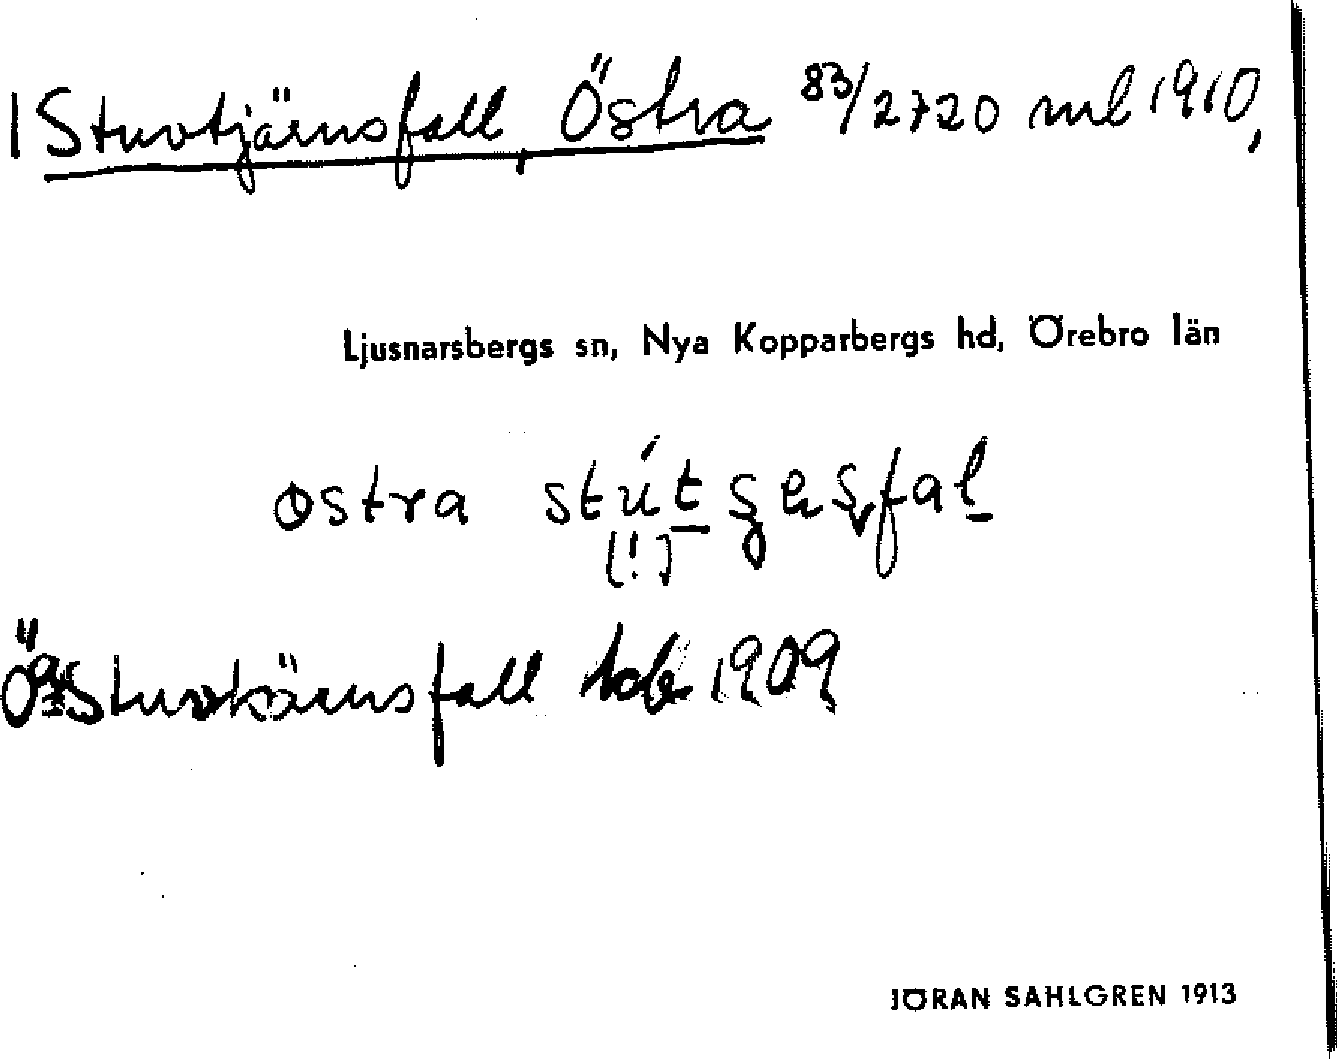 1 Sturtjärnsfall, Östra 83/2720 ml 1910,
Ljusnarsbergs sn, Nya Kopparbergs hd, Örebro län
[!]
Ö. Sturtkärnsfall 1909
JÖRAN SAHLGREN 1913